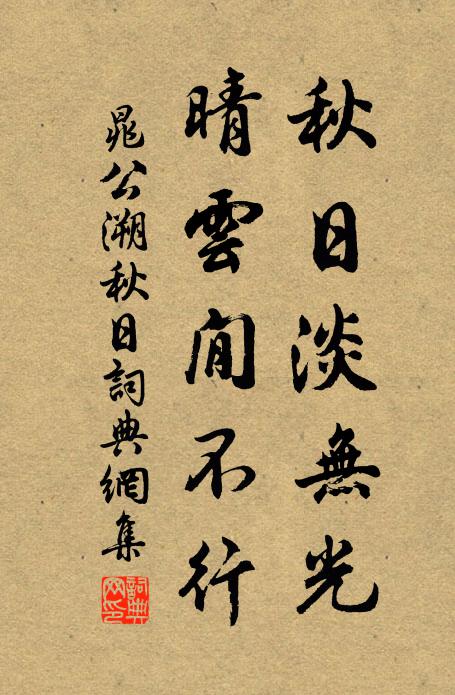 秋日淡無光
晴雲閒不行
晁公溯秋日詞典網集
詞典网印